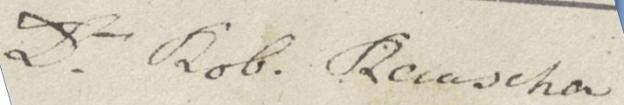 Dr. Rob. Rauscher